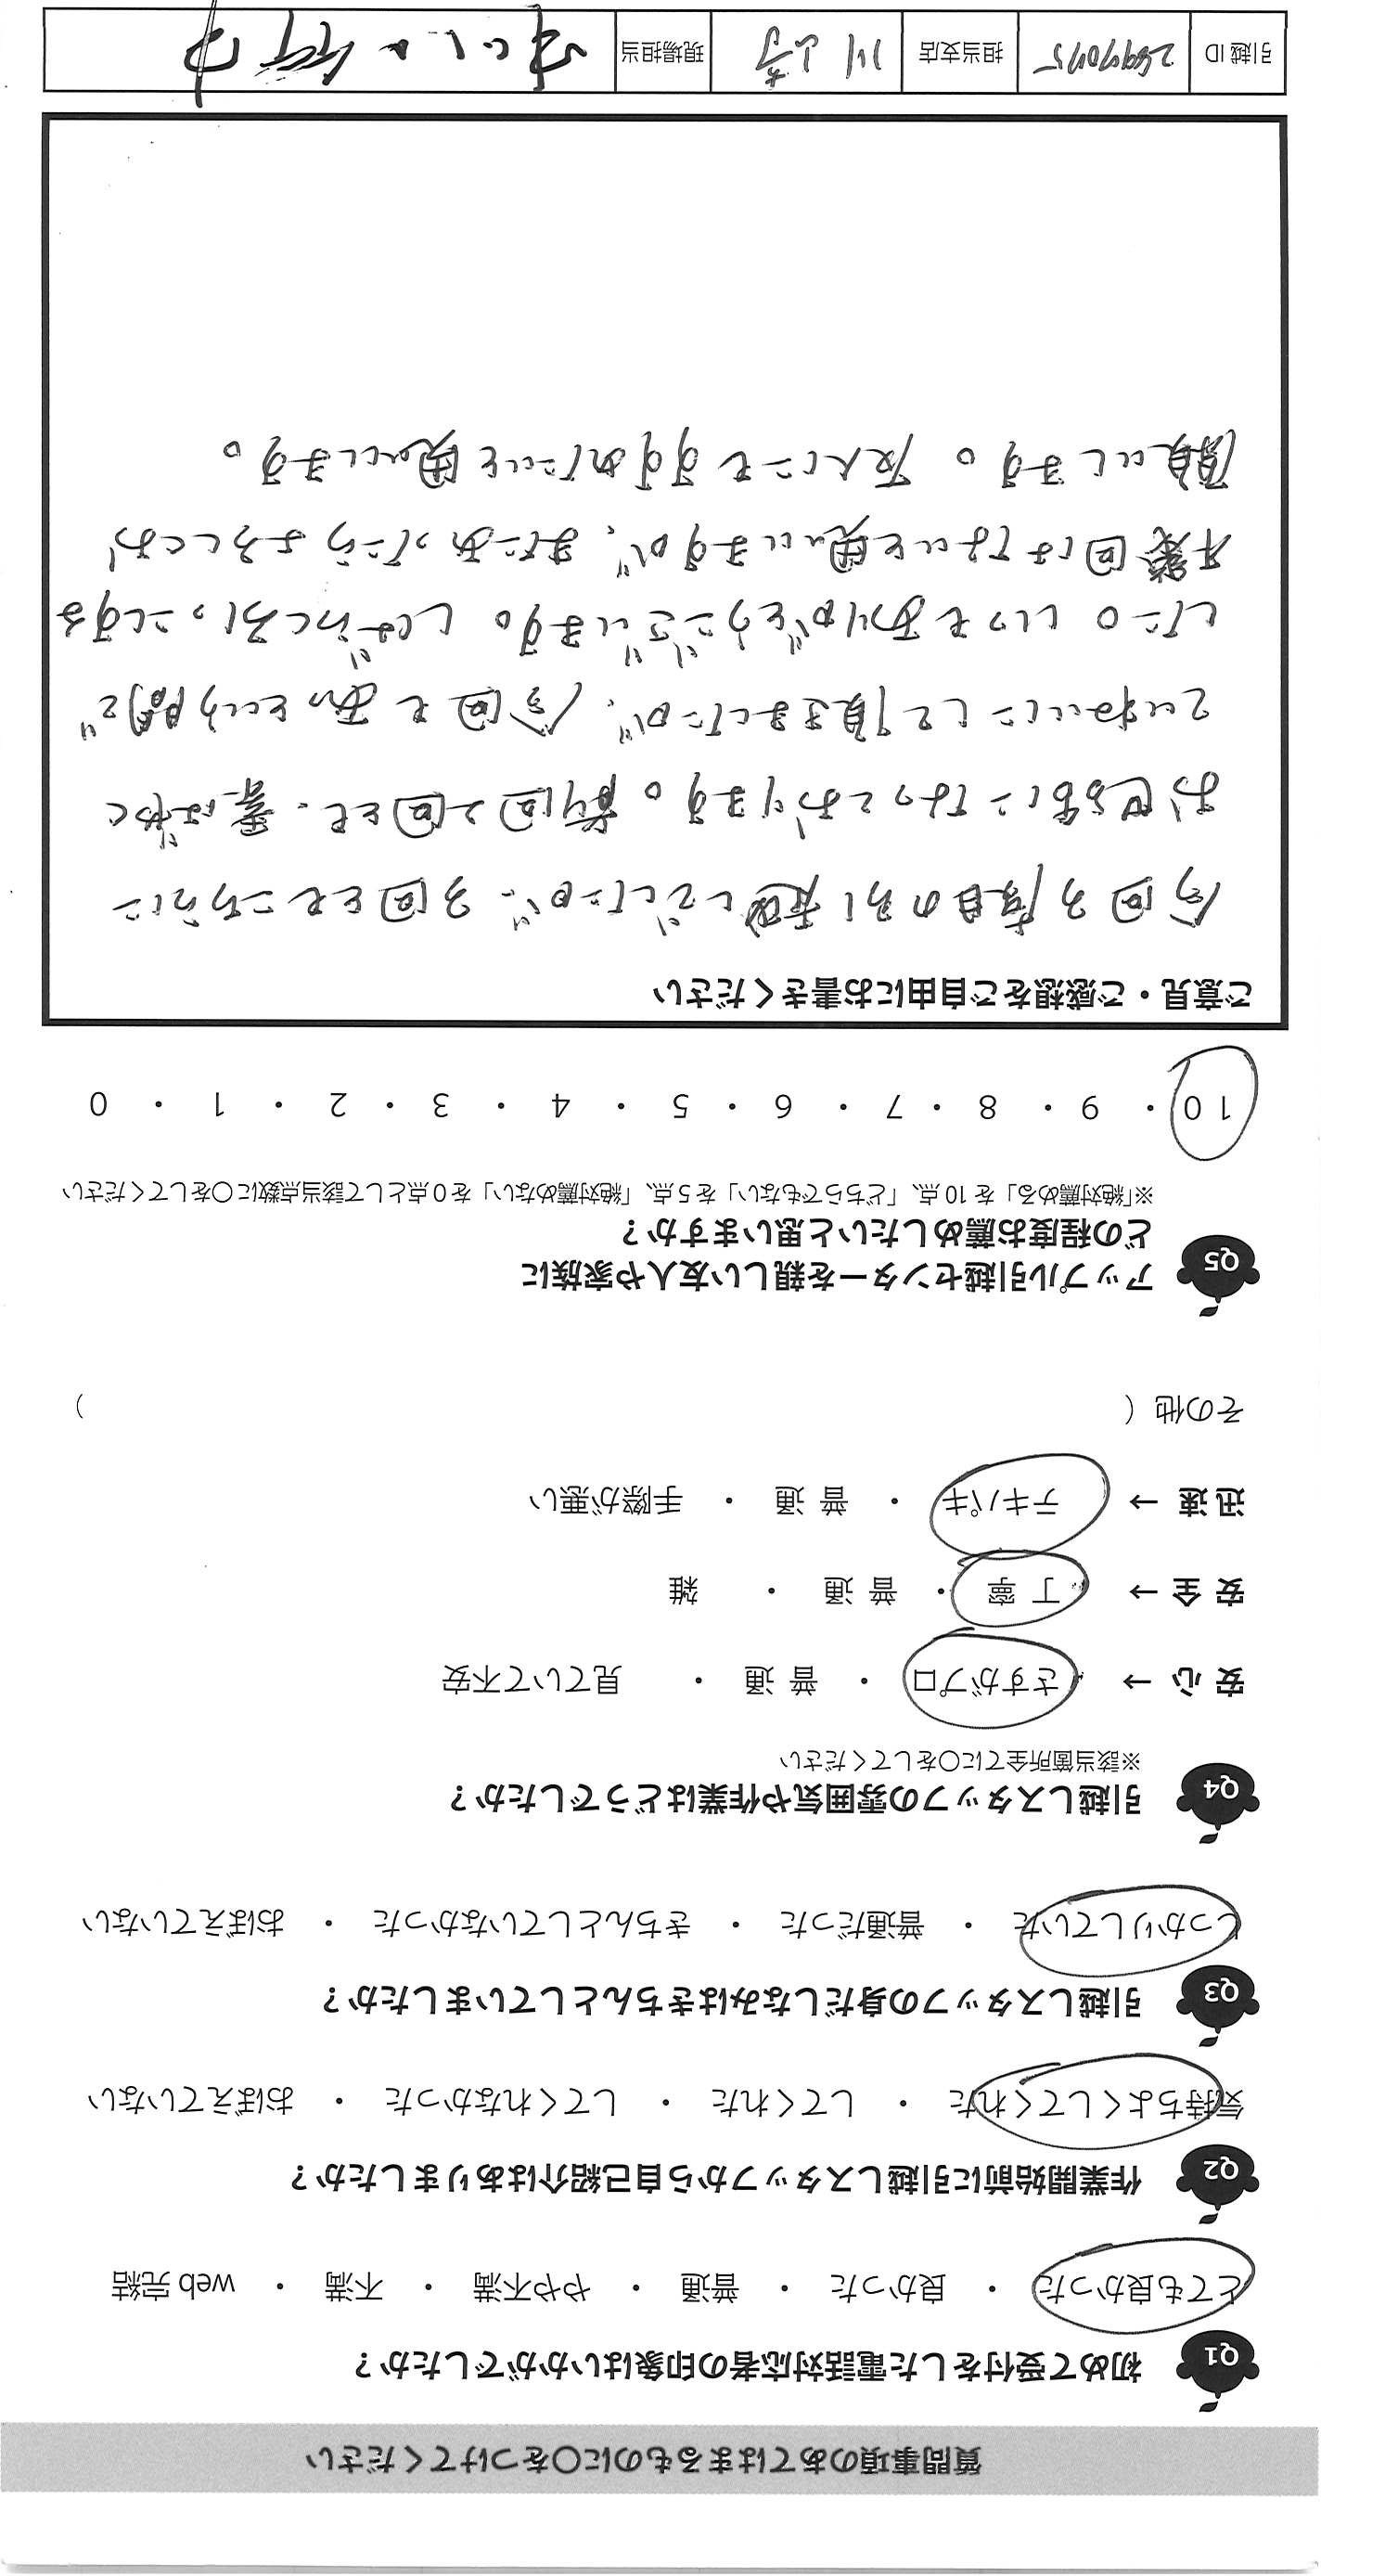 質問事項のあてはまるものに○をつけてください
Q1 初めて受付をした電話対応者の印象はいかがでしたか？
とても良かった ・ 良かった ・ 普通 ・ やや不満 ・ 不満 ・ web 完結
Q2 作業開始前に引越しスタッフから自己紹介はありましたか？
気持ちよくしてくれた ・ してくれた ・ してくれなかった ・ おぼえていない
Q3 引越しスタッフの身だしなみはきちんとしていましたか？
しっかりしていた ・ 普通だった ・ きちんとしていなかった ・ おぼえていない
Q4 引越しスタッフの雰囲気や作業はどうでしたか？
※該当箇所全てに○をしてください
安心 → さすがプロ ・ 普通 ・ 見ていて不安
安全 → 丁寧 ・ 普通 ・ 雑
迅速 → テキパキ ・ 普通 ・ 手際が悪い
その他（ ）
Q5 アップル引越センターを親しい友人や家族に
どの程度お薦めしたいと思いますか？
※「絶対薦める」を 10 点、「どちらでもない」を 5 点、「絶対薦めない」を 0 点として該当点数に○をしてください
10 ・ 9 ・ 8 ・ 7 ・ 6 ・ 5 ・ 4 ・ 3 ・ 2 ・ 1 ・ 0
ご意見・ご感想をご自由にお書きください
今回3度目の引越しでしたが、3回ともこちらに
お世話になっております。前回2回とも、素ばやく
ていねいにして頂きましたが、今回もあっという間で
した。いつもありがとうございます。しばらく引っこする
予定はないと思いますが、またあったらよろしくお
願いします。友人にもすすめたいと思います。
引越 ID
担当支店 川崎
現場担当